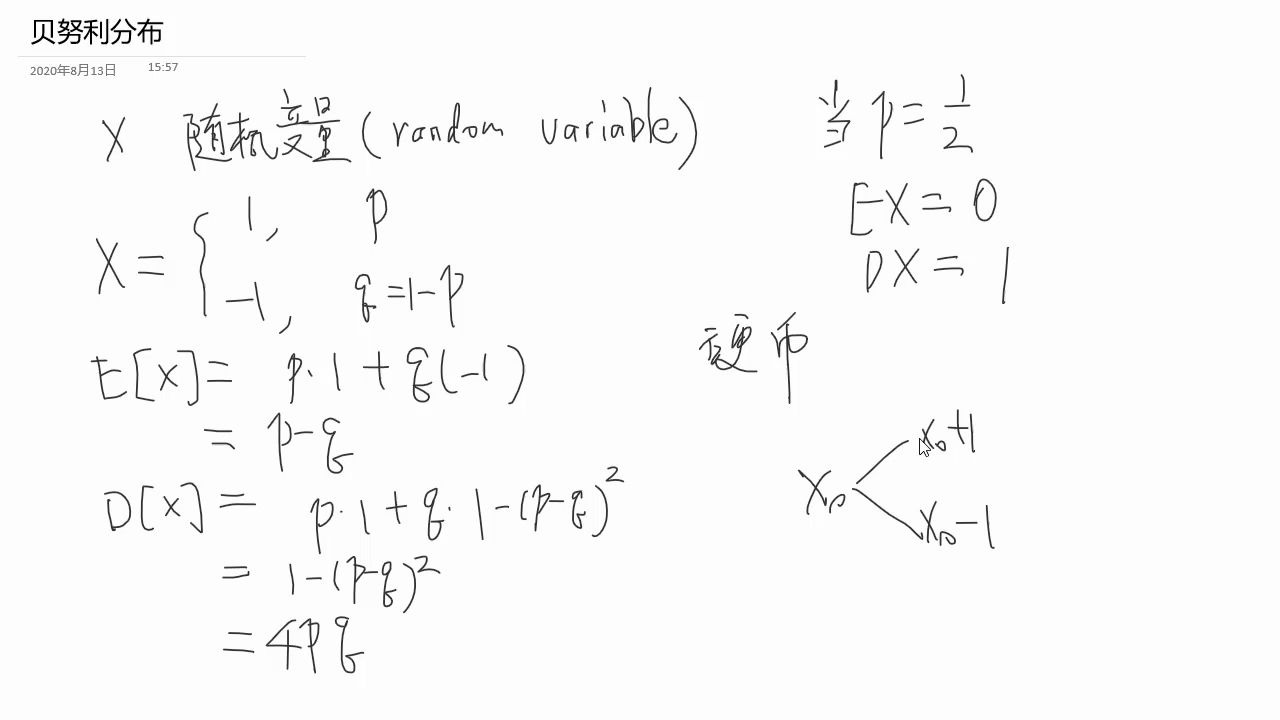 贝努利分布
2020年8月13日 15:57
X 随机变量(random variable)
X = { 1, p
-1, q = 1-p
E[X] = p·1 + q(-1)
= p-q
D[X] = p·1 + q·1-(p-q)²
= 1-(p-q)²
= 4pq
当 p = 1/2
EX = 0
DX = 1
硬币
x₀+1
X₀
x₀-1